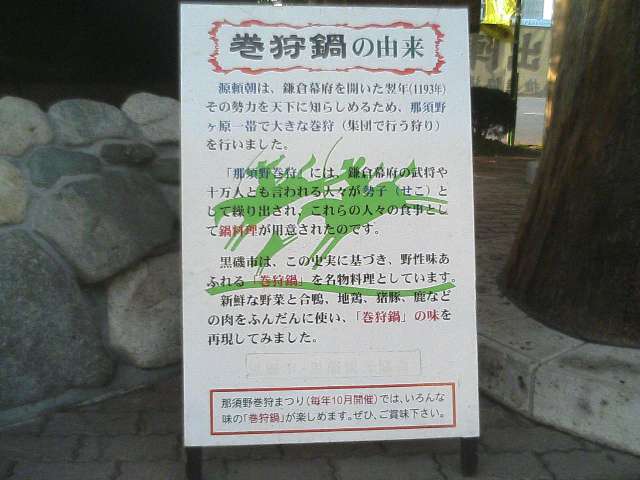 巻狩鍋の由来
源頼朝は、鎌倉幕府を開いた翌年(1193年)
その勢力を天下に知らしめるため、那須野
ヶ原一帯で大きな巻狩（集団で行う狩り）
を行いました。
「那須野巻狩」には、鎌倉幕府の武将や
十万人とも言われる人々が勢子（せこ）と
して繰り出され、これらの人々の食事とし
て鍋料理が用意されたのです。
黒磯市は、この史実に基づき、野性味あ
ふれる「巻狩鍋」を名物料理としています。
新鮮な野菜と合鴨、地鶏、猪豚、鹿など
の肉をふんだんに使い、「巻狩鍋」の味を
再現してみました。
那須野巻狩まつり(毎年10月開催)では、いろんな
味の「巻狩鍋」が楽しめます。ぜひ、ご賞味下さい。